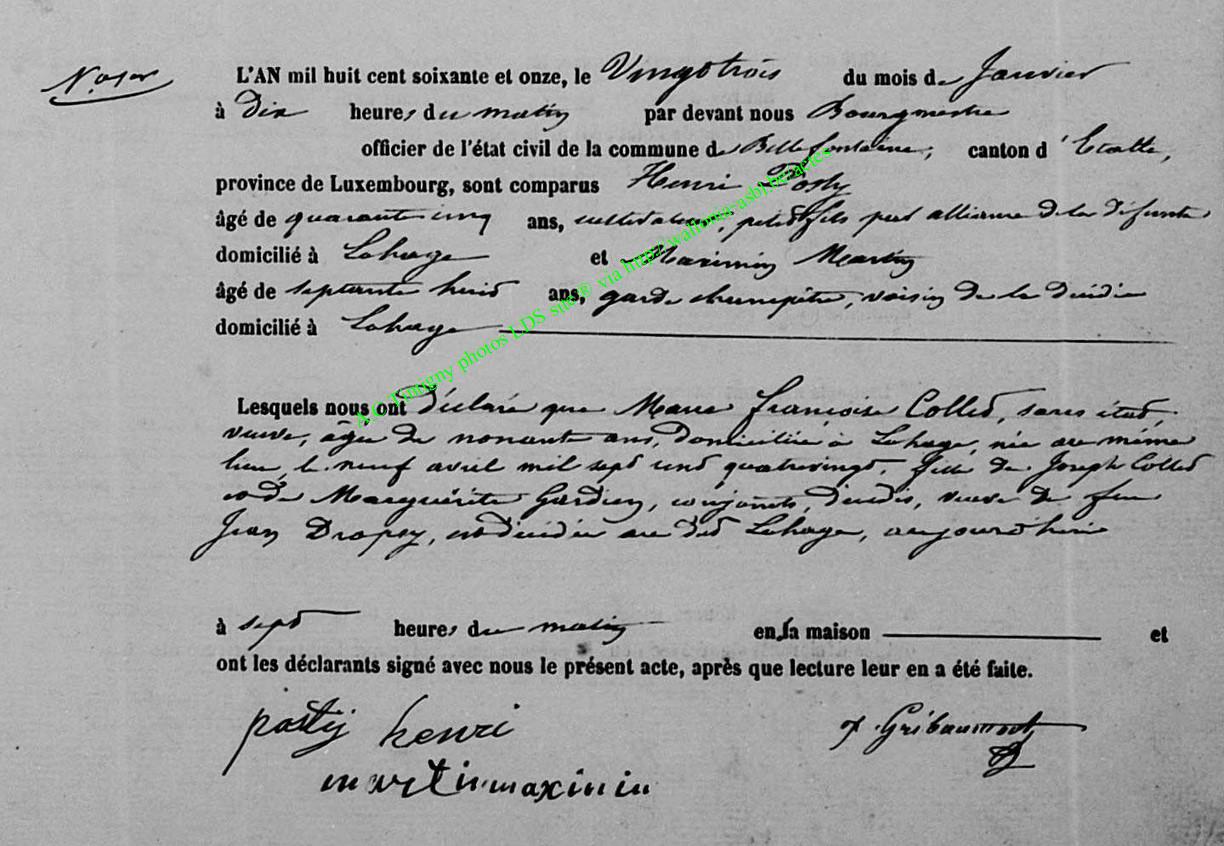 L'AN mil huit cent soixante et onze, le Vingt trois du mois de Janvier
à Dix heures du matin par devant nous Bourgmestre
officier de l'état civil de la commune de Bellefontaine, canton d'Etalle,
province de Luxembourg, sont comparus Henri Posty
âgé de quarante cinq ans, cultivateur, petit fils par alliance de la défunte
domicilié à Lahage et Maximin Martin
âgé de septante huit ans, garde champêtre, voisin de la décédée
domicilié à Lahage
Lesquels nous ont Déclaré que Marie Françoise Collet, sans état,
veuve, âgée de nonante ans, domiciliée à Lahage, née au même
lieu, le neuf avril mil sept cent quatrevingt, fille de Joseph Collet
et de Marguérite Gardien, conjoints, décédés, veuve de feu
Jean Dropsy, est décédée au dit Lahage, aujourd'hui
à sept heures du matin en sa maison et
ont les déclarants signé avec nous le présent acte, après que lecture leur en a été faite.
posty henri
martin maximin
Gribaumont
AC Tintigny photos LDS site® via http://wallonia-asbj.be/actes